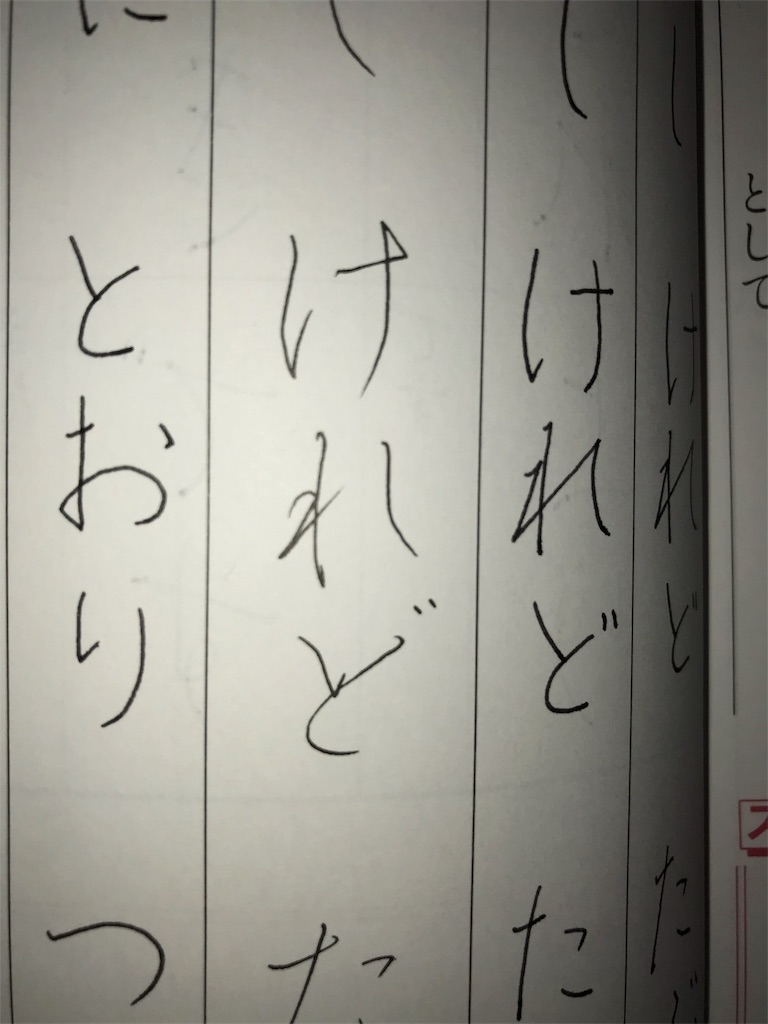 として
し けれど たど
し けれど た
し けれど た
に とおり つ